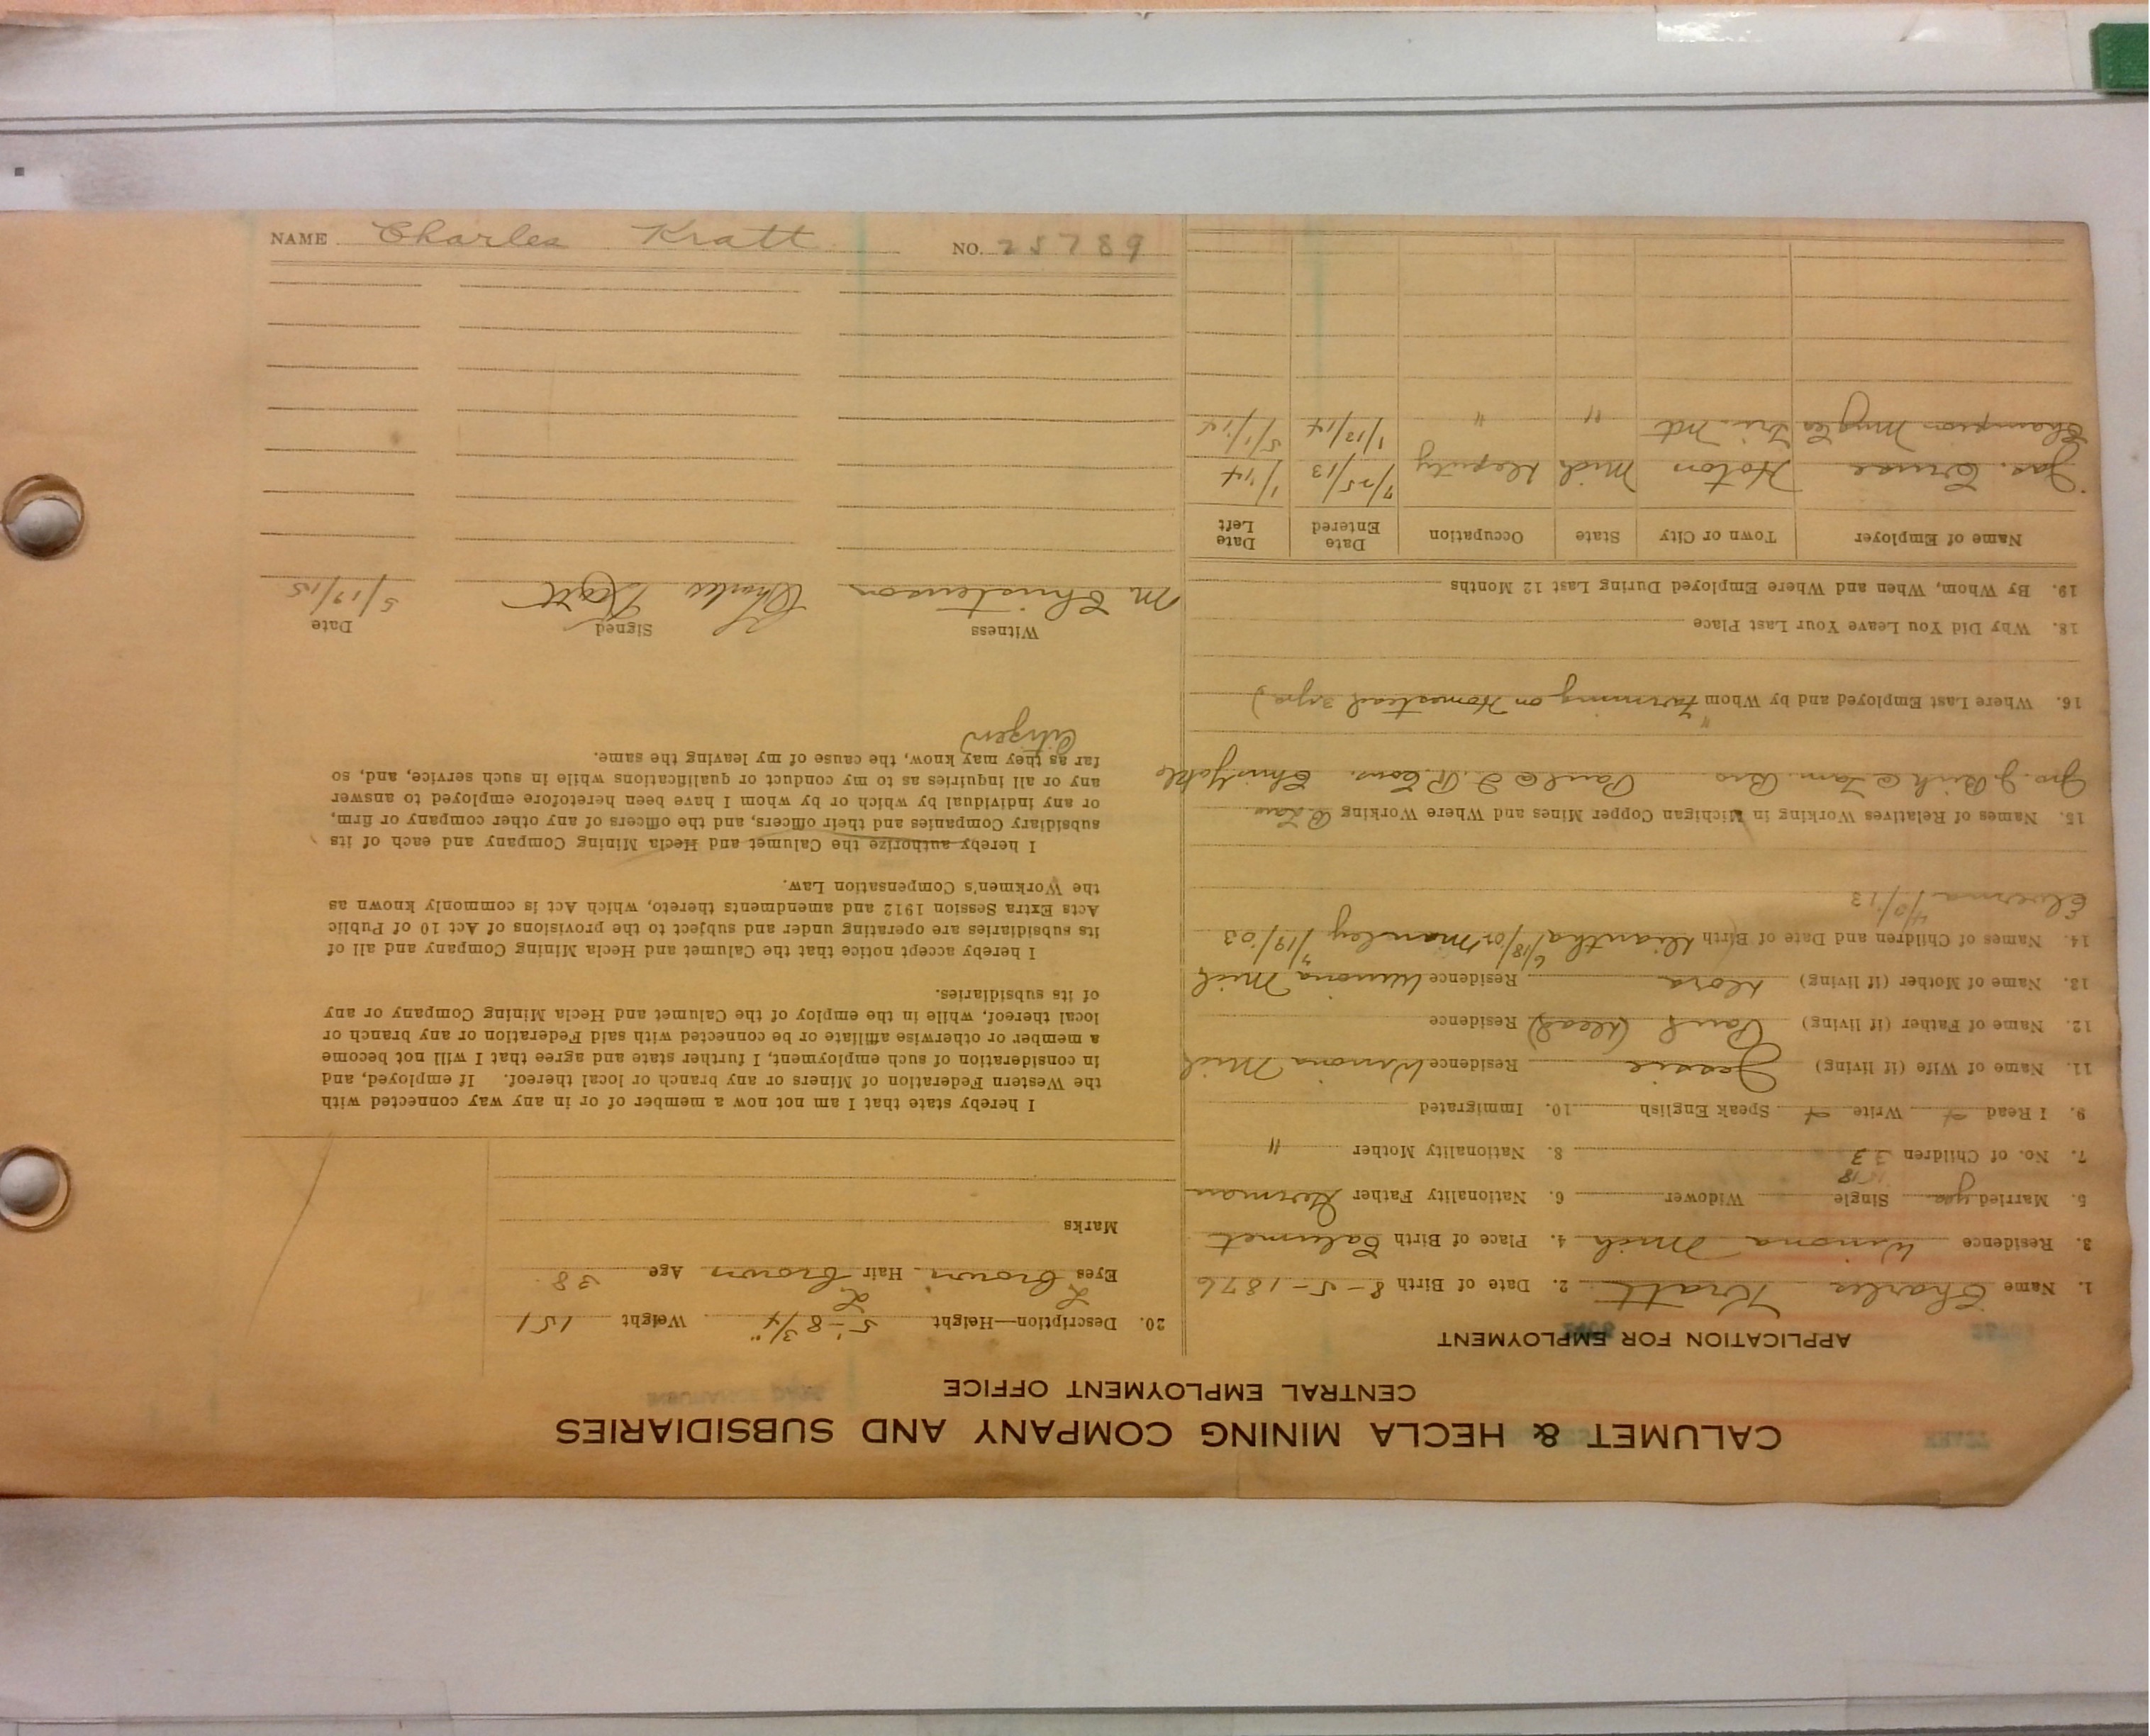 NAME Charles Kratt NO. 25789
CALUMET & HECLA MINING COMPANY AND SUBSIDIARIES
CENTRAL EMPLOYMENT OFFICE
APPLICATION FOR EMPLOYMENT
1. Name Charles Kratt 2. Date of Birth 8-5-1876
3. Residence Winona Mich 4. Place of Birth Calumet
5. Married yes Single Widower 6. Nationality Father German
7. No. of Children 3 8. Nationality Mother "
9. I Read Write Speak English 10. Immigrated
11. Name of Wife (if living) Jessie Residence Winona Mich
12. Name of Father (if living) Paul (dead) Residence
13. Name of Mother (if living) Dora Residence Winona Mich
14. Names of Children and Date of Birth Diantha 6/18/01 Manley 4/19/03
4/10/13
15. Names of Relatives Working in Michigan Copper Mines and Where Working
Bro Paul
16. Where Last Employed and by Whom Farming on Homestead
18. Why Did You Leave Your Last Place
19. By Whom, When and Where Employed During Last 12 Months
Name of Employer Town or City State Occupation Date Entered Date Left
Jas. Cruse Hoton Mich Deputy 7/25/13 1/1/14
Champion " " 1/12/14 5/1/14
20. Description—Height 5'-8 3/4" Weight 151
Eyes Brown Hair Brown Age 38
Marks
I hereby state that I am not now a member of or in any way connected with
the Western Federation of Miners or any branch or local thereof. If employed, and
in consideration of such employment, I further state and agree that I will not become
a member or otherwise affiliate or be connected with said Federation or any branch or
local thereof, while in the employ of the Calumet and Hecla Mining Company or any
of its subsidiaries.
I hereby accept notice that the Calumet and Hecla Mining Company and all of
its subsidiaries are operating under and subject to the provisions of Act 10 of Public
Acts Extra Session 1912 and amendments thereto, which Act is commonly known as
the Workmen's Compensation Law.
I hereby authorize the Calumet and Hecla Mining Company and each of its
subsidiary Companies and their officers, and the officers of any other company or firm,
or any individual by which or by whom I have been heretofore employed to answer
any or all inquiries as to my conduct or qualifications while in such service, and, so
far as they may know, the cause of my leaving the same.
Citizen
Witness Signed Date
M Christenson Charles Kratt 5/19/15